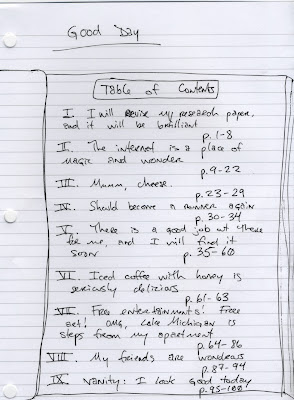 Good Day
Table of Contents
I. I will revise my research paper,
and it will be brilliant
p. 1-8
II. The internet is a place of
magic and wonder
p. 9-22
III. Mmmm, cheese.
p. 23-29
IV. Should become a runner again
p. 30-34
V. There is a good job out there
for me, and I will find it
soon p. 35-60
VI. Iced coffee with honey is
seriously delicious
p. 61-63
VII. Free entertainments! Free
art! OMG, Lake Michigan is
steps from my apartment
p. 64-86
VIII. My friends are wondrous
p. 87-94
IX. Vanity: I look good today
p. 95-100